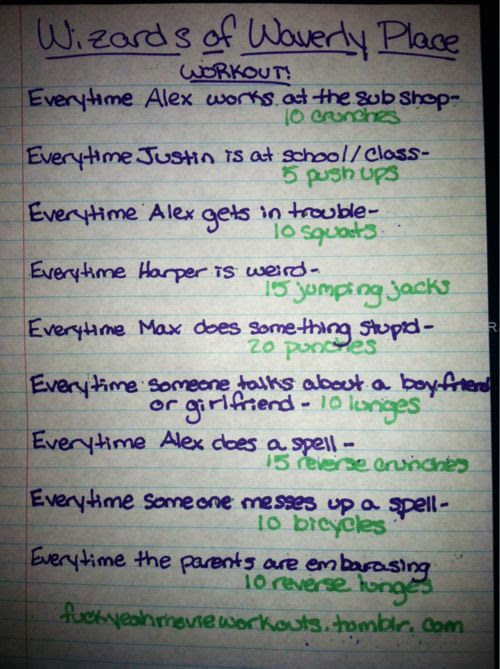 Wizards of Waverly Place
WORKOUT!
Everytime Alex works at the sub shop-
10 crunches
Everytime Justin is at school/class-
5 push ups
Everytime Alex gets in trouble-
10 squats
Everytime Harper is weird-
15 jumping jacks
Everytime Max does something stupid-
20 punches
Everytime someone talks about a boyfriend
or girlfriend - 10 lunges
Everytime Alex does a spell -
15 reverse crunches
Everytime someone messes up a spell-
10 bicycles
Everytime the parents are embarasing
10 reverse lunges
fuckyeahmovieworkouts.tumblr.com